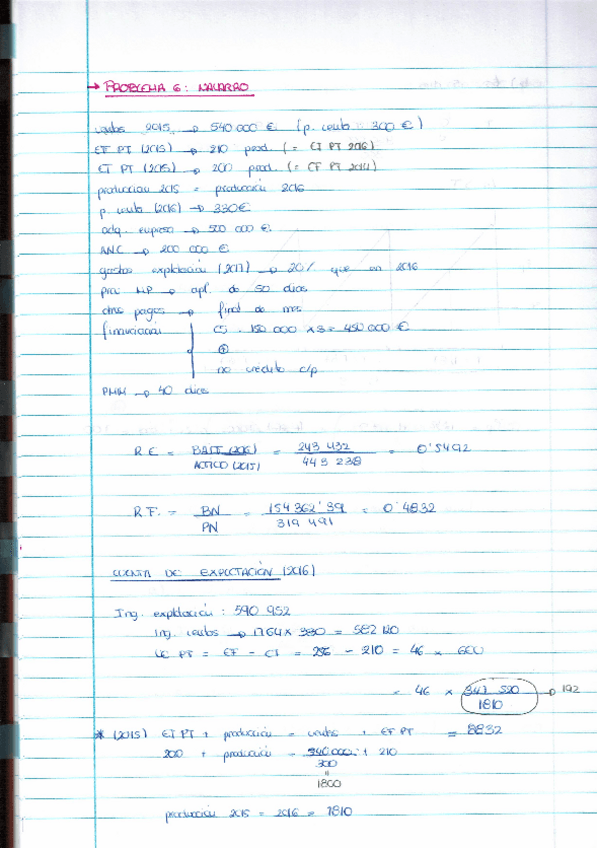 → PROBLEMA 6: NAVARRO
ventas 2015 → 540 000 € (p. venta 300 €)
EF PT (2015) → 210 prod. (= EI PT 2016)
EI PT (2015) → 200 prod. (= EF PT 2014)
producción 2015 = producción 2016
p. venta (2016) → 330 €
adq. empresa → 500 000 €
ANC → 200 000 €
gastos explotación (2017) → 20% que en 2016
pro. MP → apl. de 50 días
dms pagos → final de mes
financiación CS = 150 000 x 3 = 450 000 €
⊕
no crédito c/p
PMM → 40 días
R.E = BAIT (2016) / ACTIVO (2015) = 243 432 / 443 238 = 0'5492
R.F. = BN / PN = 154 362'39 / 319 491 = 0'4832
CUENTA DE EXPLOTACIÓN (2016)
Ing. explotación: 590 952
Ing. ventas → 1764 x 330 = 582 120
VE PT = EF - EI = 256 - 210 = 46 x
= 46 x 347 520 / 1810 → 192
= 8832
* (2015) EI PT + producción = ventas + EF PT
200 + producción = 540 000 / 300 + 210
1800
producción 2015 = 2016 = 1810